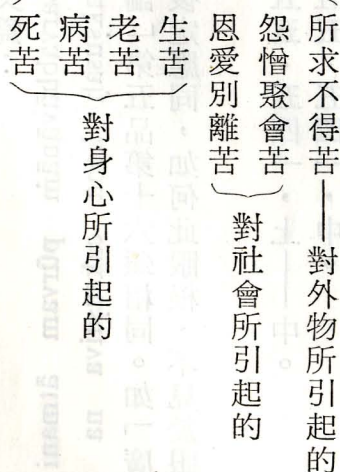 所求不得苦——對外物所引起的
怨憎聚會苦
恩愛別離苦
對社會所引起的
生苦
老苦
病苦
死苦
對身心所引起的